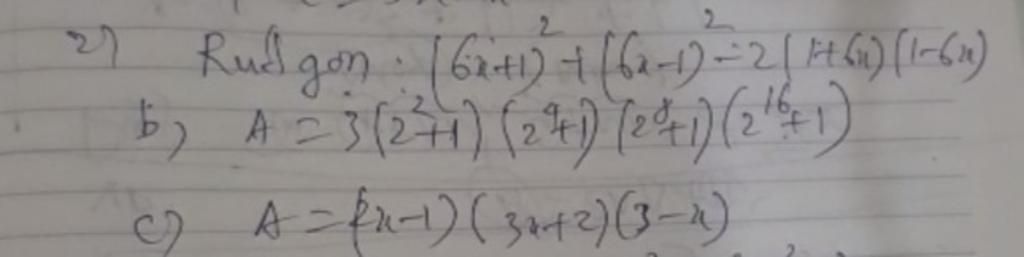 2) Rudgon : (6x+1)² + (6x-1)² - 2(1+6x)(1-6x)
b) A = 3(2²+1)(2⁴+1)(2⁸+1)(2¹⁶+1)
c) A = (2x-1)(3x+2)(3-x)